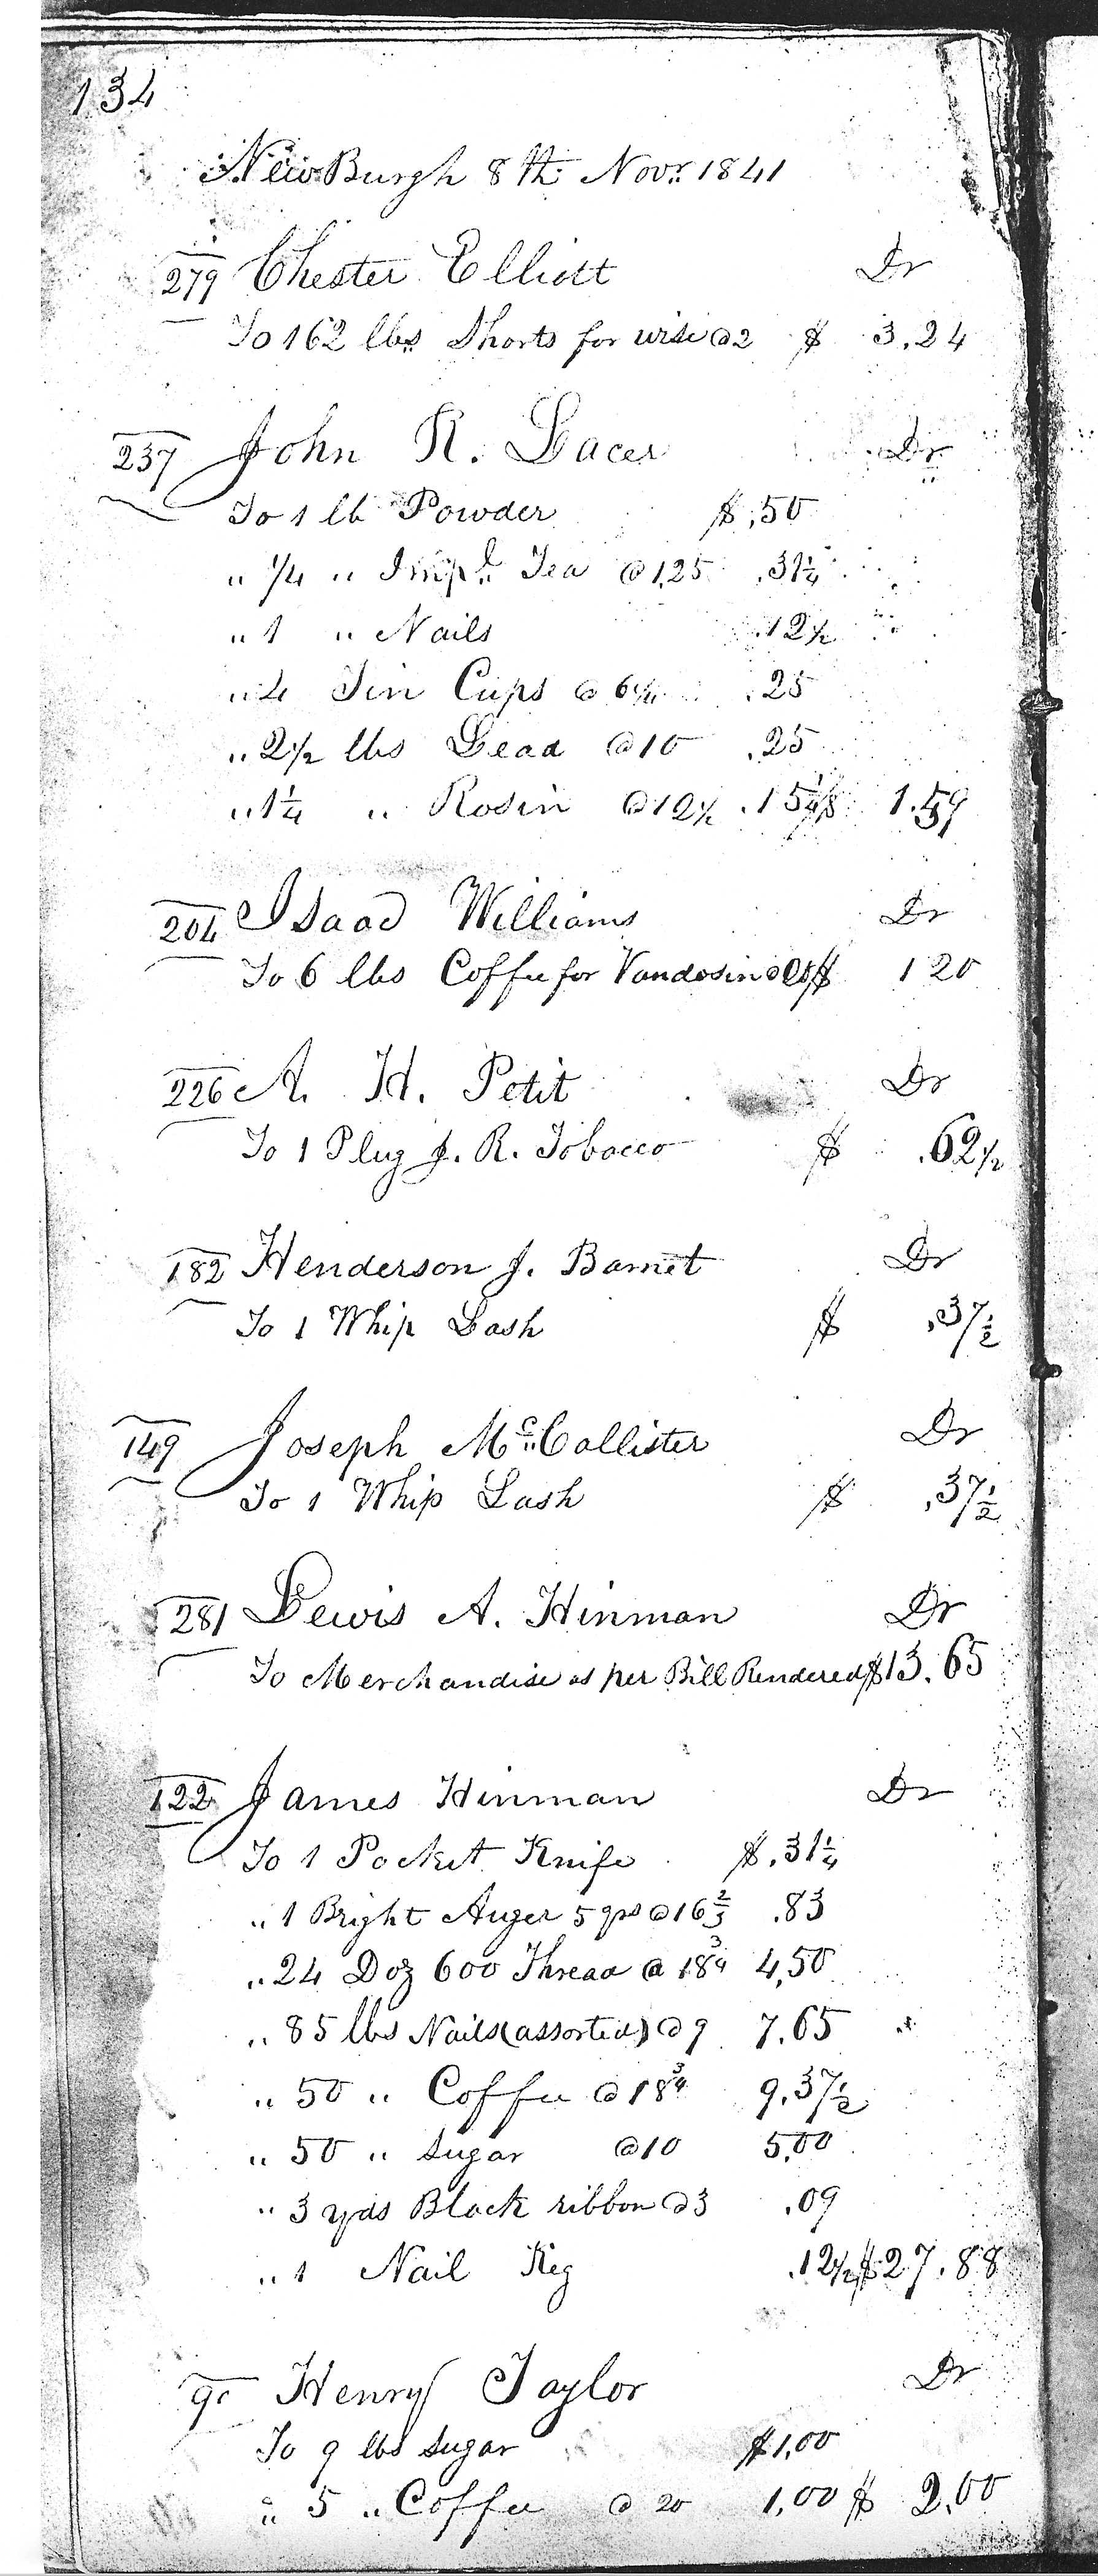 134
NewBurgh 8th Novr. 1841
279 Chester Elliott Dr
To 162 lbs Shorts for wise @2 $ 3.24
237 John R. Lacer Dr
To 1 lb Powder $.50
" 1/4 " Impl. Tea @1.25 .31 1/4
" 1 " Nails .12 1/2
" 4 Tin Cups @ 6 1/4 .25
" 2 1/2 lbs Lead @10 .25
" 1 1/4 " Rosin @12 1/2 .15 1.59
204 Isaac Williams Dr
To 6 lbs Coffee for Vandosin @ $ 1 20
226 A. H. Petit Dr
To 1 Plug J. R. Tobacco $ .62 1/2
182 Henderson J. Barnet Dr
To 1 Whip Lash $ .37 1/2
149 Joseph McCallister Dr
To 1 Whip Lash $ .37 1/2
281 Lewis A. Hinman Dr
To Merchandise as per Bill Rendered $13.65
122 James Hinman Dr
To 1 Pocket Knife $.31 1/4
" 1 Bright Auger 5 qrs @16 2/3 .83
" 24 Doz 600 Thread @ 18 3/4 4,50
" 85 lbs Nails (assorted) @9 7.65
" 50 " Coffee @18 3/4 9.37 1/2
" 50 " Sugar @10 5,00
" 3 yds Black ribbon @3 .09
" 1 Nail Keg .12 1/2 $27.88
Henry Taylor Dr
To 9 lbs Sugar $1,00
" 5 " Coffee @ 20 1,00 $ 2,00